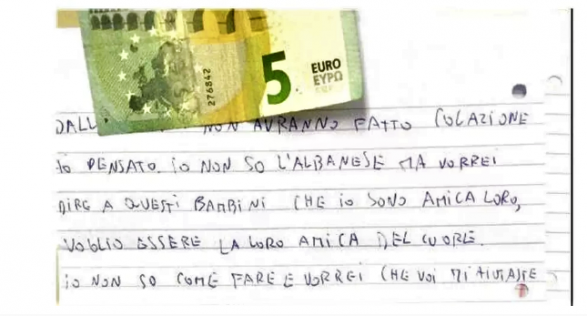 5 EURO
ΕΥΡΩ
276842
DALL NON AVRANNO FATTO COLAZIONE
HO PENSATO. IO NON SO L'ALBANESE MA VORREI
DIRE A QUESTI BAMBINI CHE IO SONO AMICA LORO,
VOGLIO ESSERE LA LORO AMICA DEL CUORE.
IO NON SO COME FARE E VORREI CHE VOI MI AIUTASTE